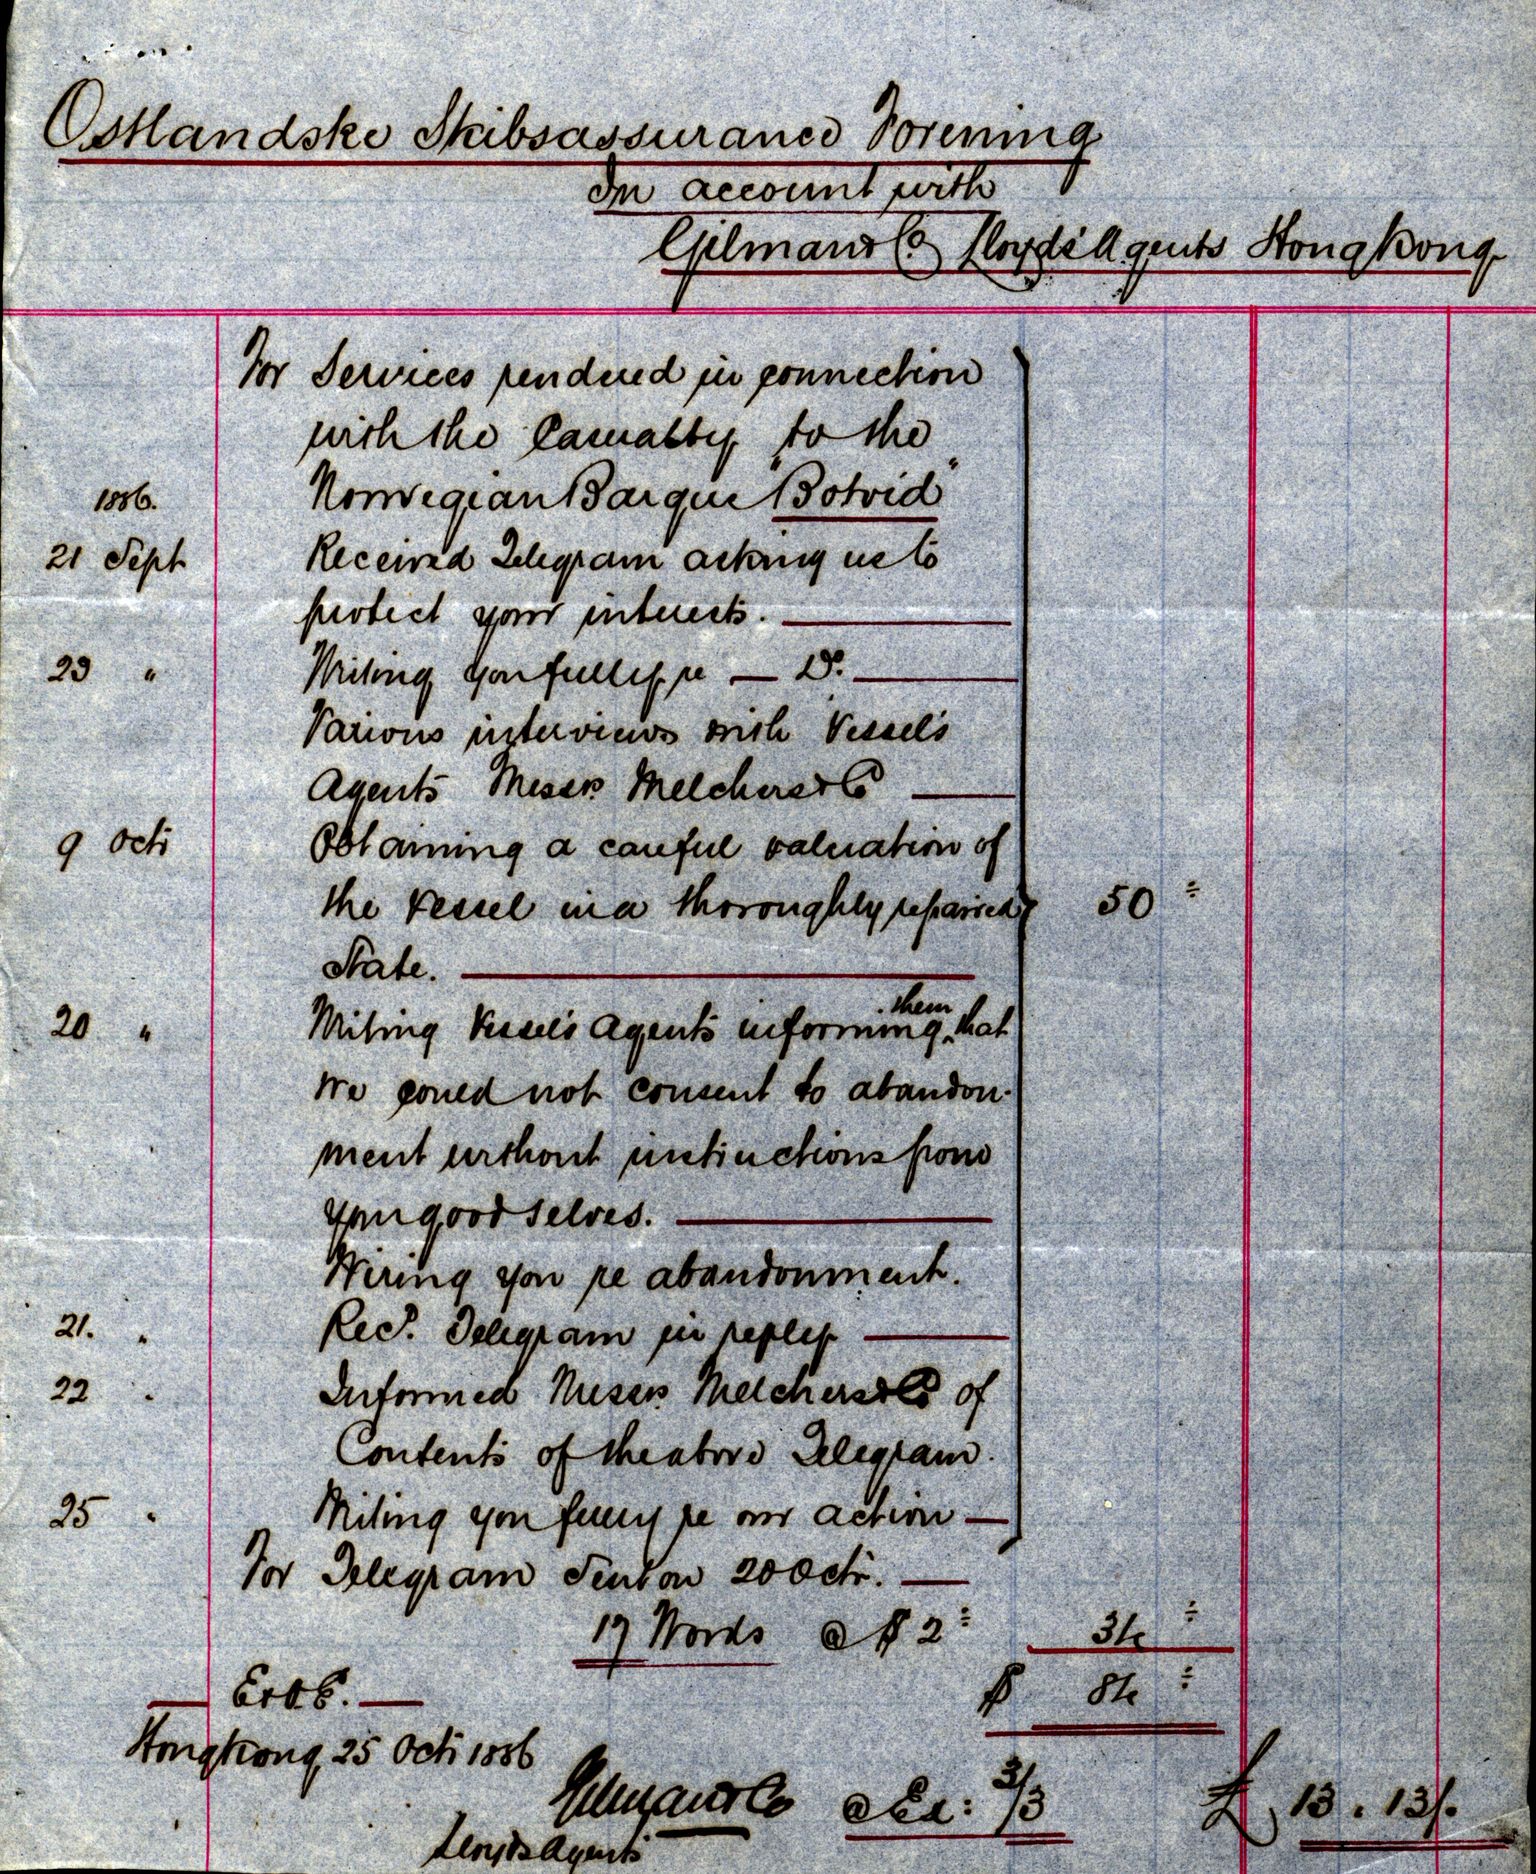 Ostlandske Skibsassurance Forening
In account with
Gilman & Co. Lloyds' Agents Hongkong
For Services rendered in connection
with the Casualty to the
1886. Norwegian Barque "Botvid"
21 Sept Received Telegram asking us to
protect your interests.
23 " Writing you fully re — Do.
Various interviews with Vessel's
Agents Messrs Melchers & Co
9 Octr Obtaining a careful valuation of
the Vessel in a thoroughly repaired 50 ÷
State.
20 " Writing Vessel's Agents informing them that
we could not consent to abandon-
ment without instructions from
your good selves.
Wiring you re abandonment.
21. " Recd. Telegram in reply
22 " Informed Messrs Melchers & Co of
Contents of the above Telegram.
25 " Writing you fully re our action —
For Telegram Sent on 20 Octr. —
17 Words @ $ 2 ÷ 34 ÷
E & O E. $ 84 ÷
Hongkong, 25 Octr 1886
Gilman & Co @ Ex: 3/3 £ 13.13/.
Lloyds Agents